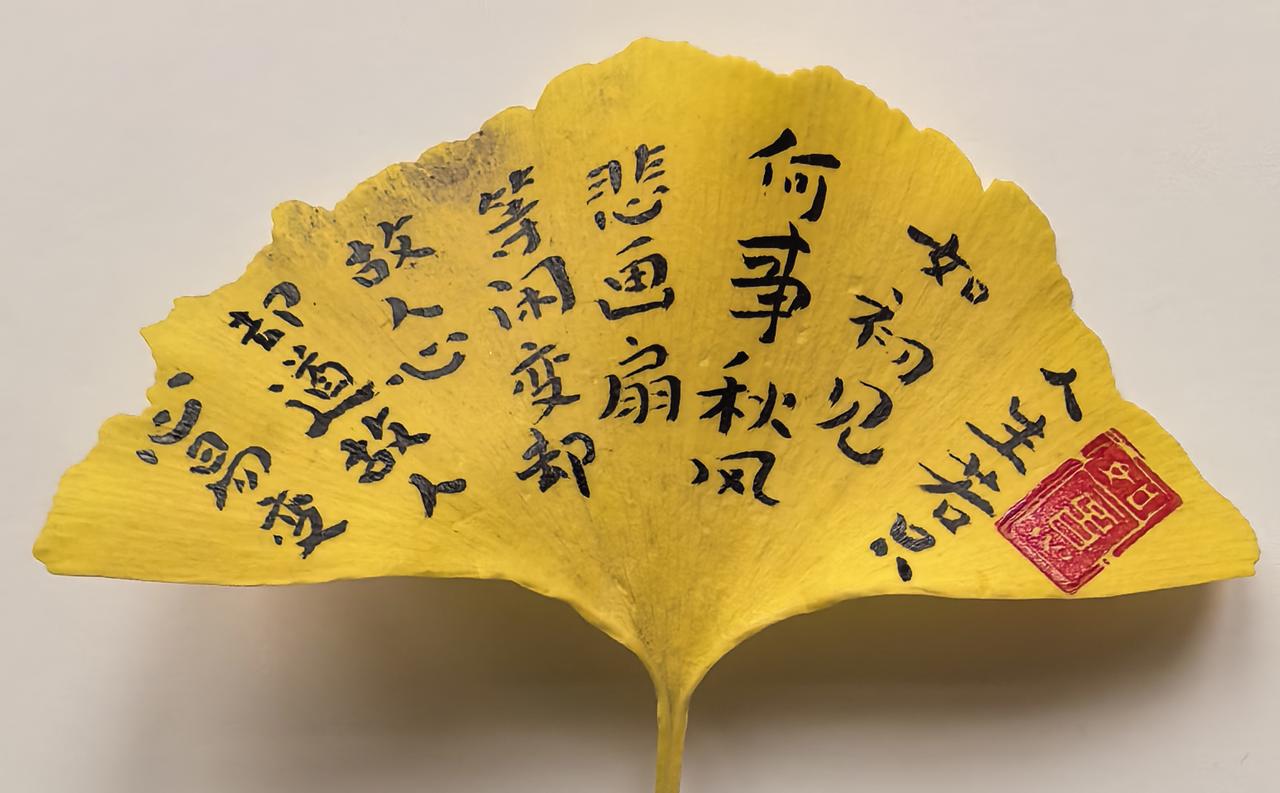 人生若只
如初见
何事秋风
悲画扇
等闲变却
故人心
却道故人
心易变